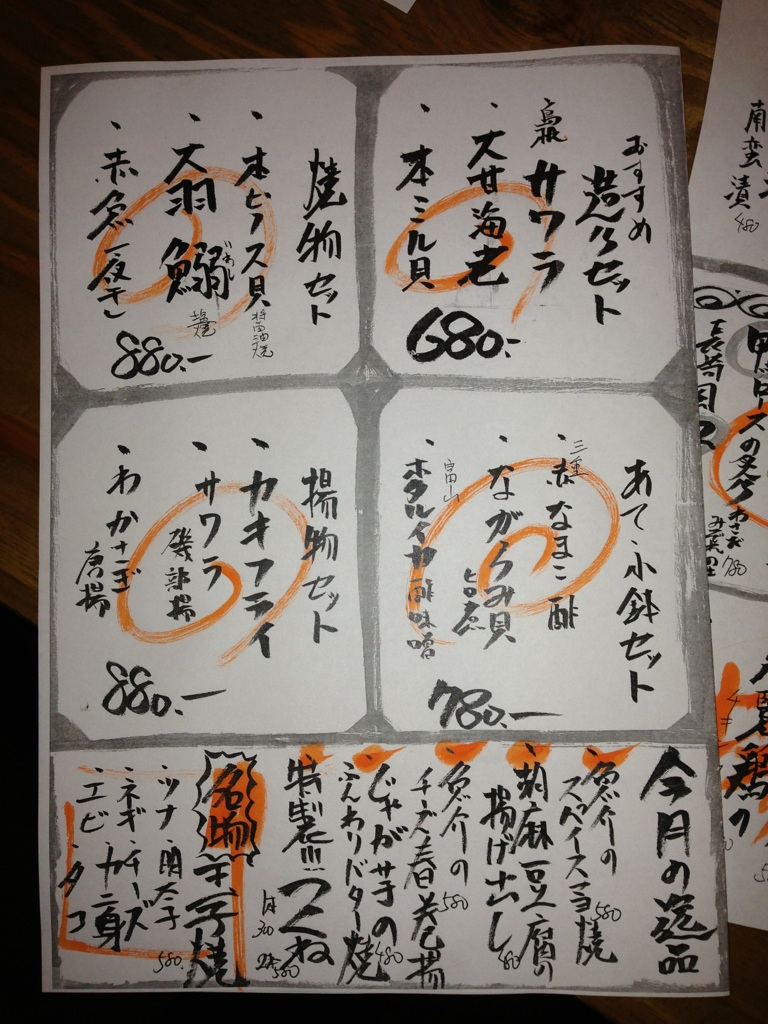 おすすめ
造りセット
鳥取
・サワラ
・大甘海老
・本ミル貝
680.-
焼物セット
・本ヒノス貝
醤油焼
・大羽鰯
いわし
塩焼
・赤魚一夜干し
880.-
あて・小鉢セット
三重
・赤なまこ酢
・ながらみ貝
旨煮
富山
・ホタルイカ酢味噌
780.-
揚物セット
・カキフライ
・サワラ
磯部揚
・わかさぎ
唐揚
880.-
今月の逸品
・魚介の
スパイスマヨ焼
580
・胡麻豆腐の
揚げ出し
480
・魚介の
チーズ春巻揚
580
・じゃが芋の
ふんわりバター焼
480
・特製!!!つくね
1本30
2本580
名物
玉子焼
・ツナ・明太子
・ネギ・チーズ
・エビ・カニ身
・タコ
580
南蛮漬
480
鴨ロースの
わさび
780
長崎
鶏の